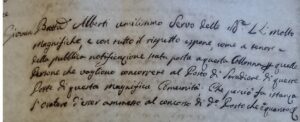 Giovan Batta Alberti umilissimo Servo delle Me LL: molto
magnifiche, e con tutto il rispetto espone come a tenore
della pubblica notificazione stata posta a questa Colonna quelle
Persone che vogliono concorrere al Posto di Stradiere di queste
Porte di questa magnifica Comunità: Che perciò fa istanza
l'oratore di esser ammesso al concorso di do Posto che